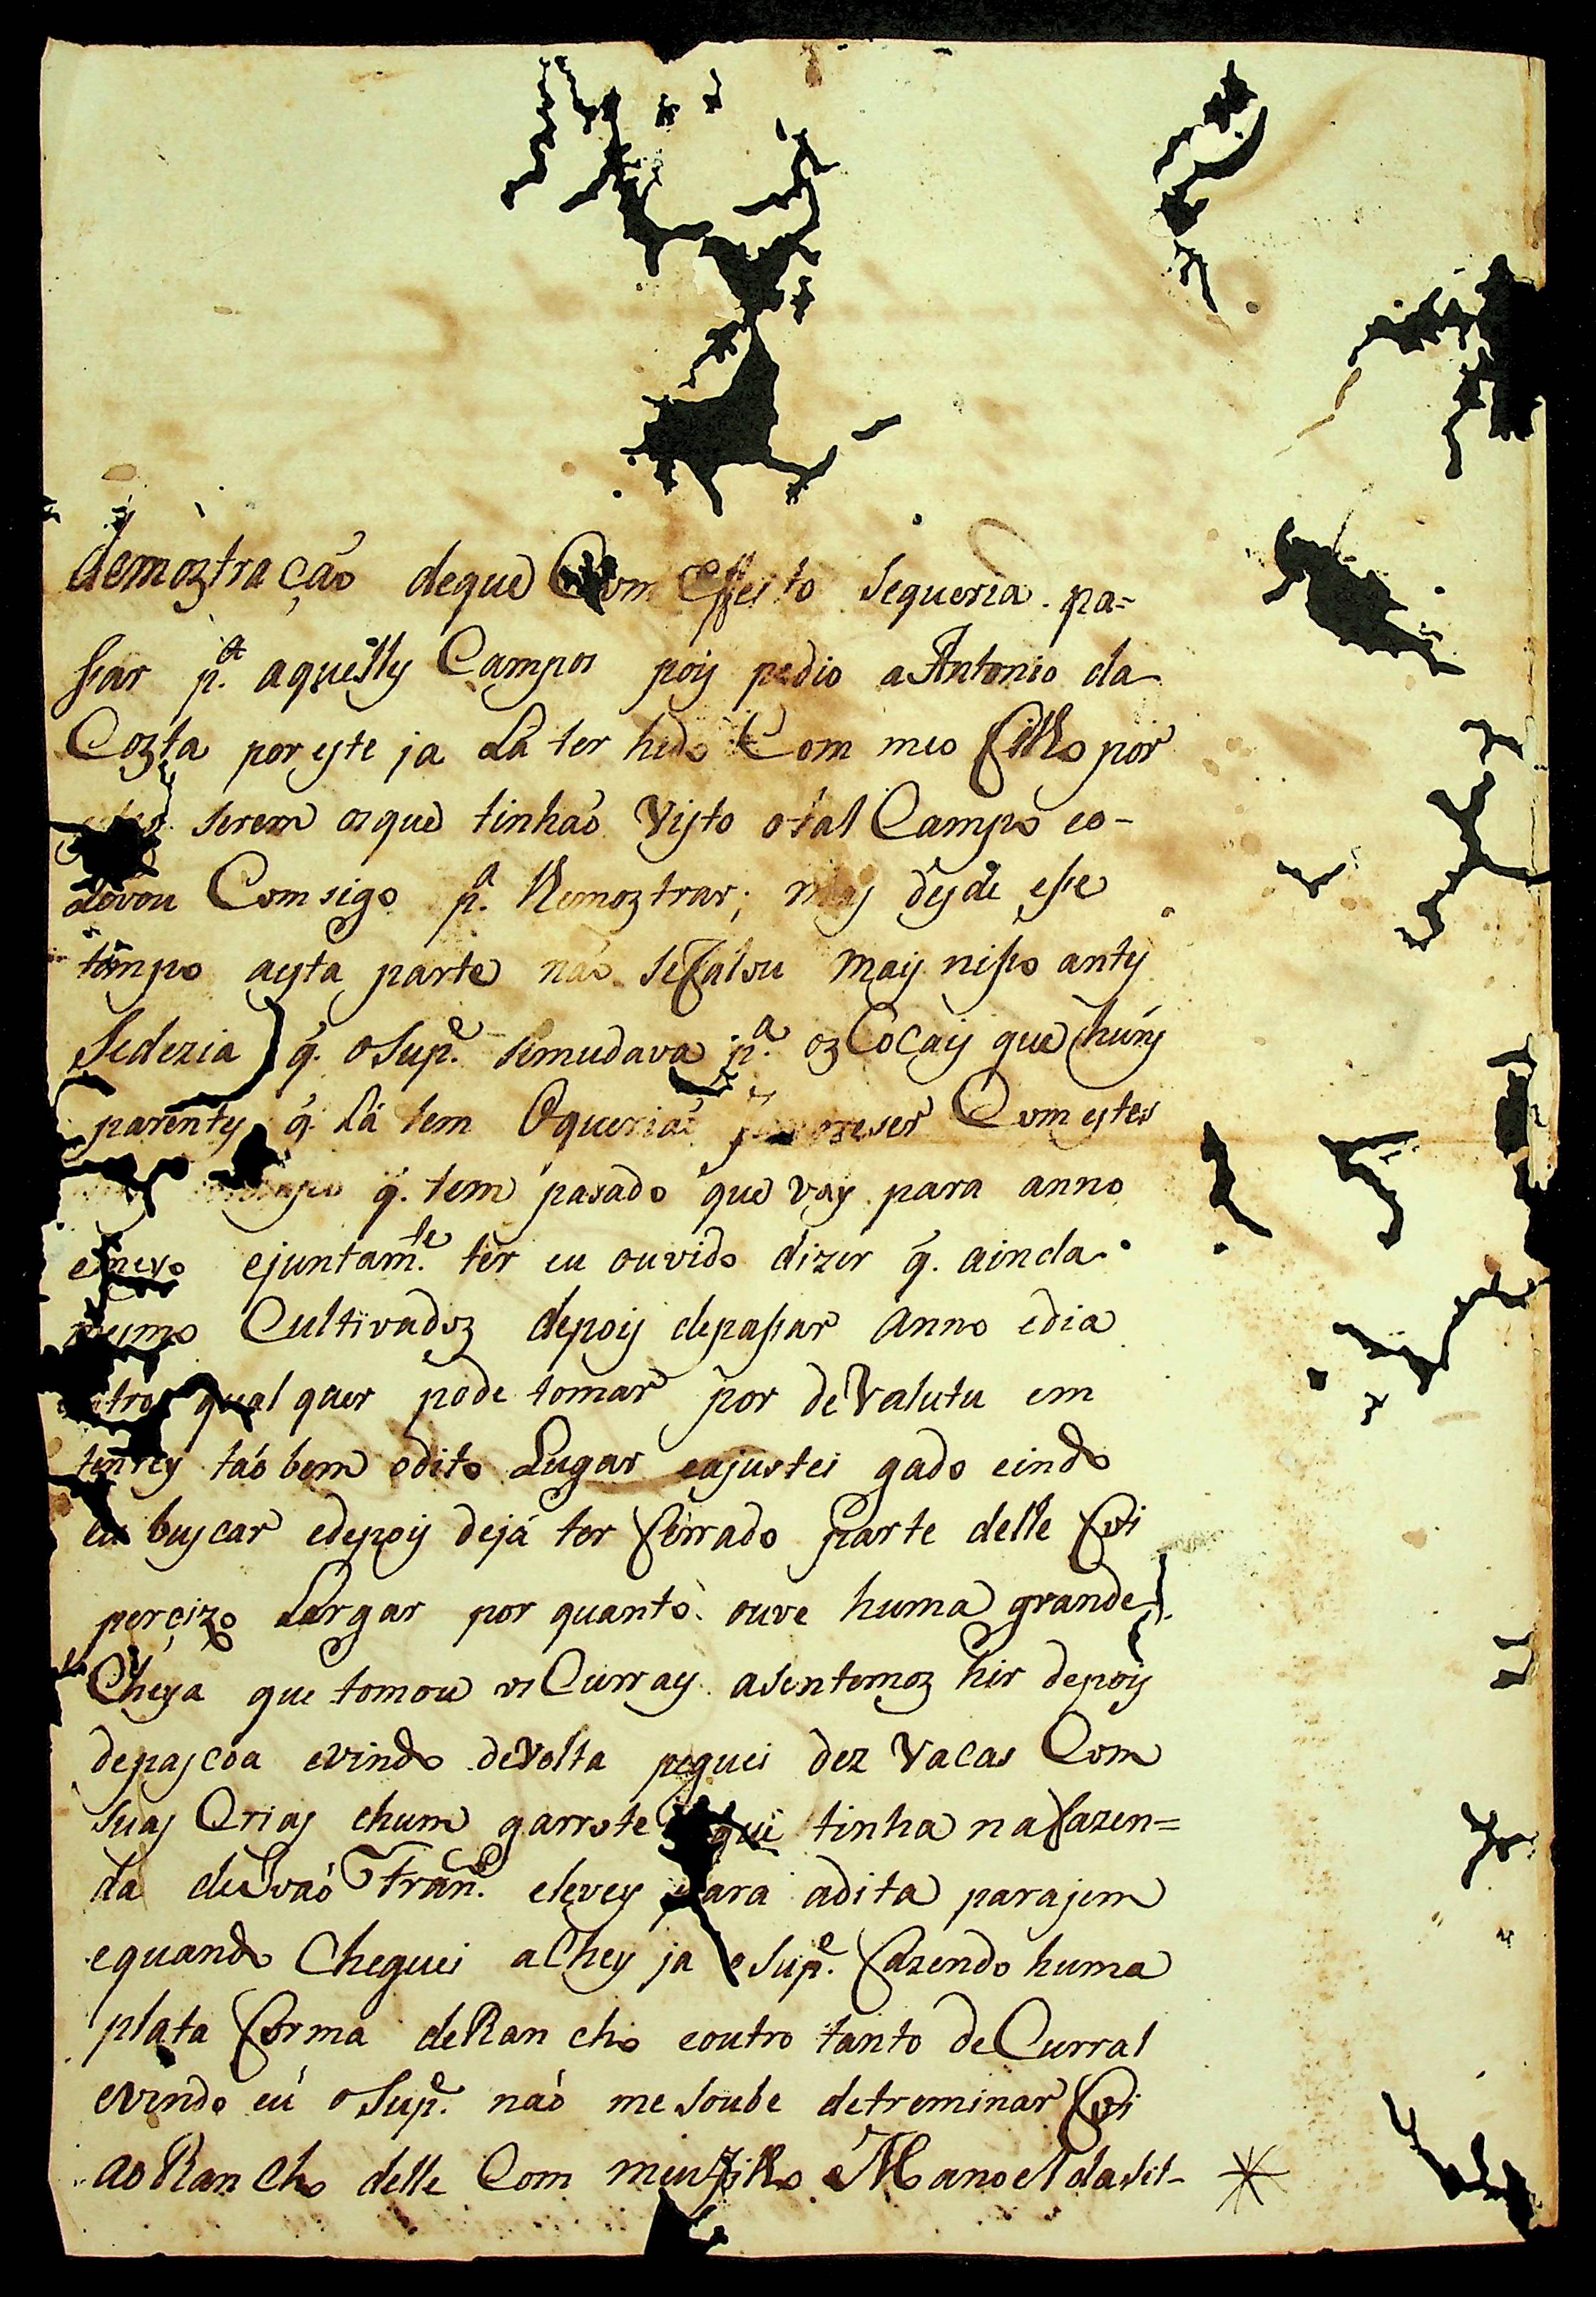 demoztração deque Com Effeito sequeria pa=
ssar p.ª aquelly Campos poiy pedio aAntonio da
Cozta por yste ja Lá ter hido Com meo filho por
serem osque tinhaó Visto otal Campo eo-
Levou Comsigo p.ª Remoztrar; may deyde esse
tempo aysta parte naó seFalou maiy nisso anty
sedezia q. oSup.e semudava p.ª oz Cocaiy que huñy
parenty q. Lá tem Oqueriaó Com estes
q. tem pasado que vay para anno
emeyo ejuntam.te ter eu ouvido dizer q. ainda
meymo Cultivadoz depoiy depassar anno edia
outro qual quer pode tomar por deValutu em
tentey taó bem odito Lugar eajustei gado eindo
eu buycar edepoiy dejá ter ferrado parte delle foi
percizo Largar por quanto ouve huma grande
Cheya que tomou os Curray asentemoz hir depoiy
depaycoa evindo deVolta peguei dez Vacas Com
suay Criay ehum garrote que tinha nafazen=
da deJoaó Fran.co elevey para adita parajem
equando Cheguei aChey ja oSup.e fazendo huma
plata forma deRan cho eoutro tanto deCurral
evindo eú oSup.e naó me soube detreminar foi
aoRan Cho delle Com meufilho Manoel dasil-